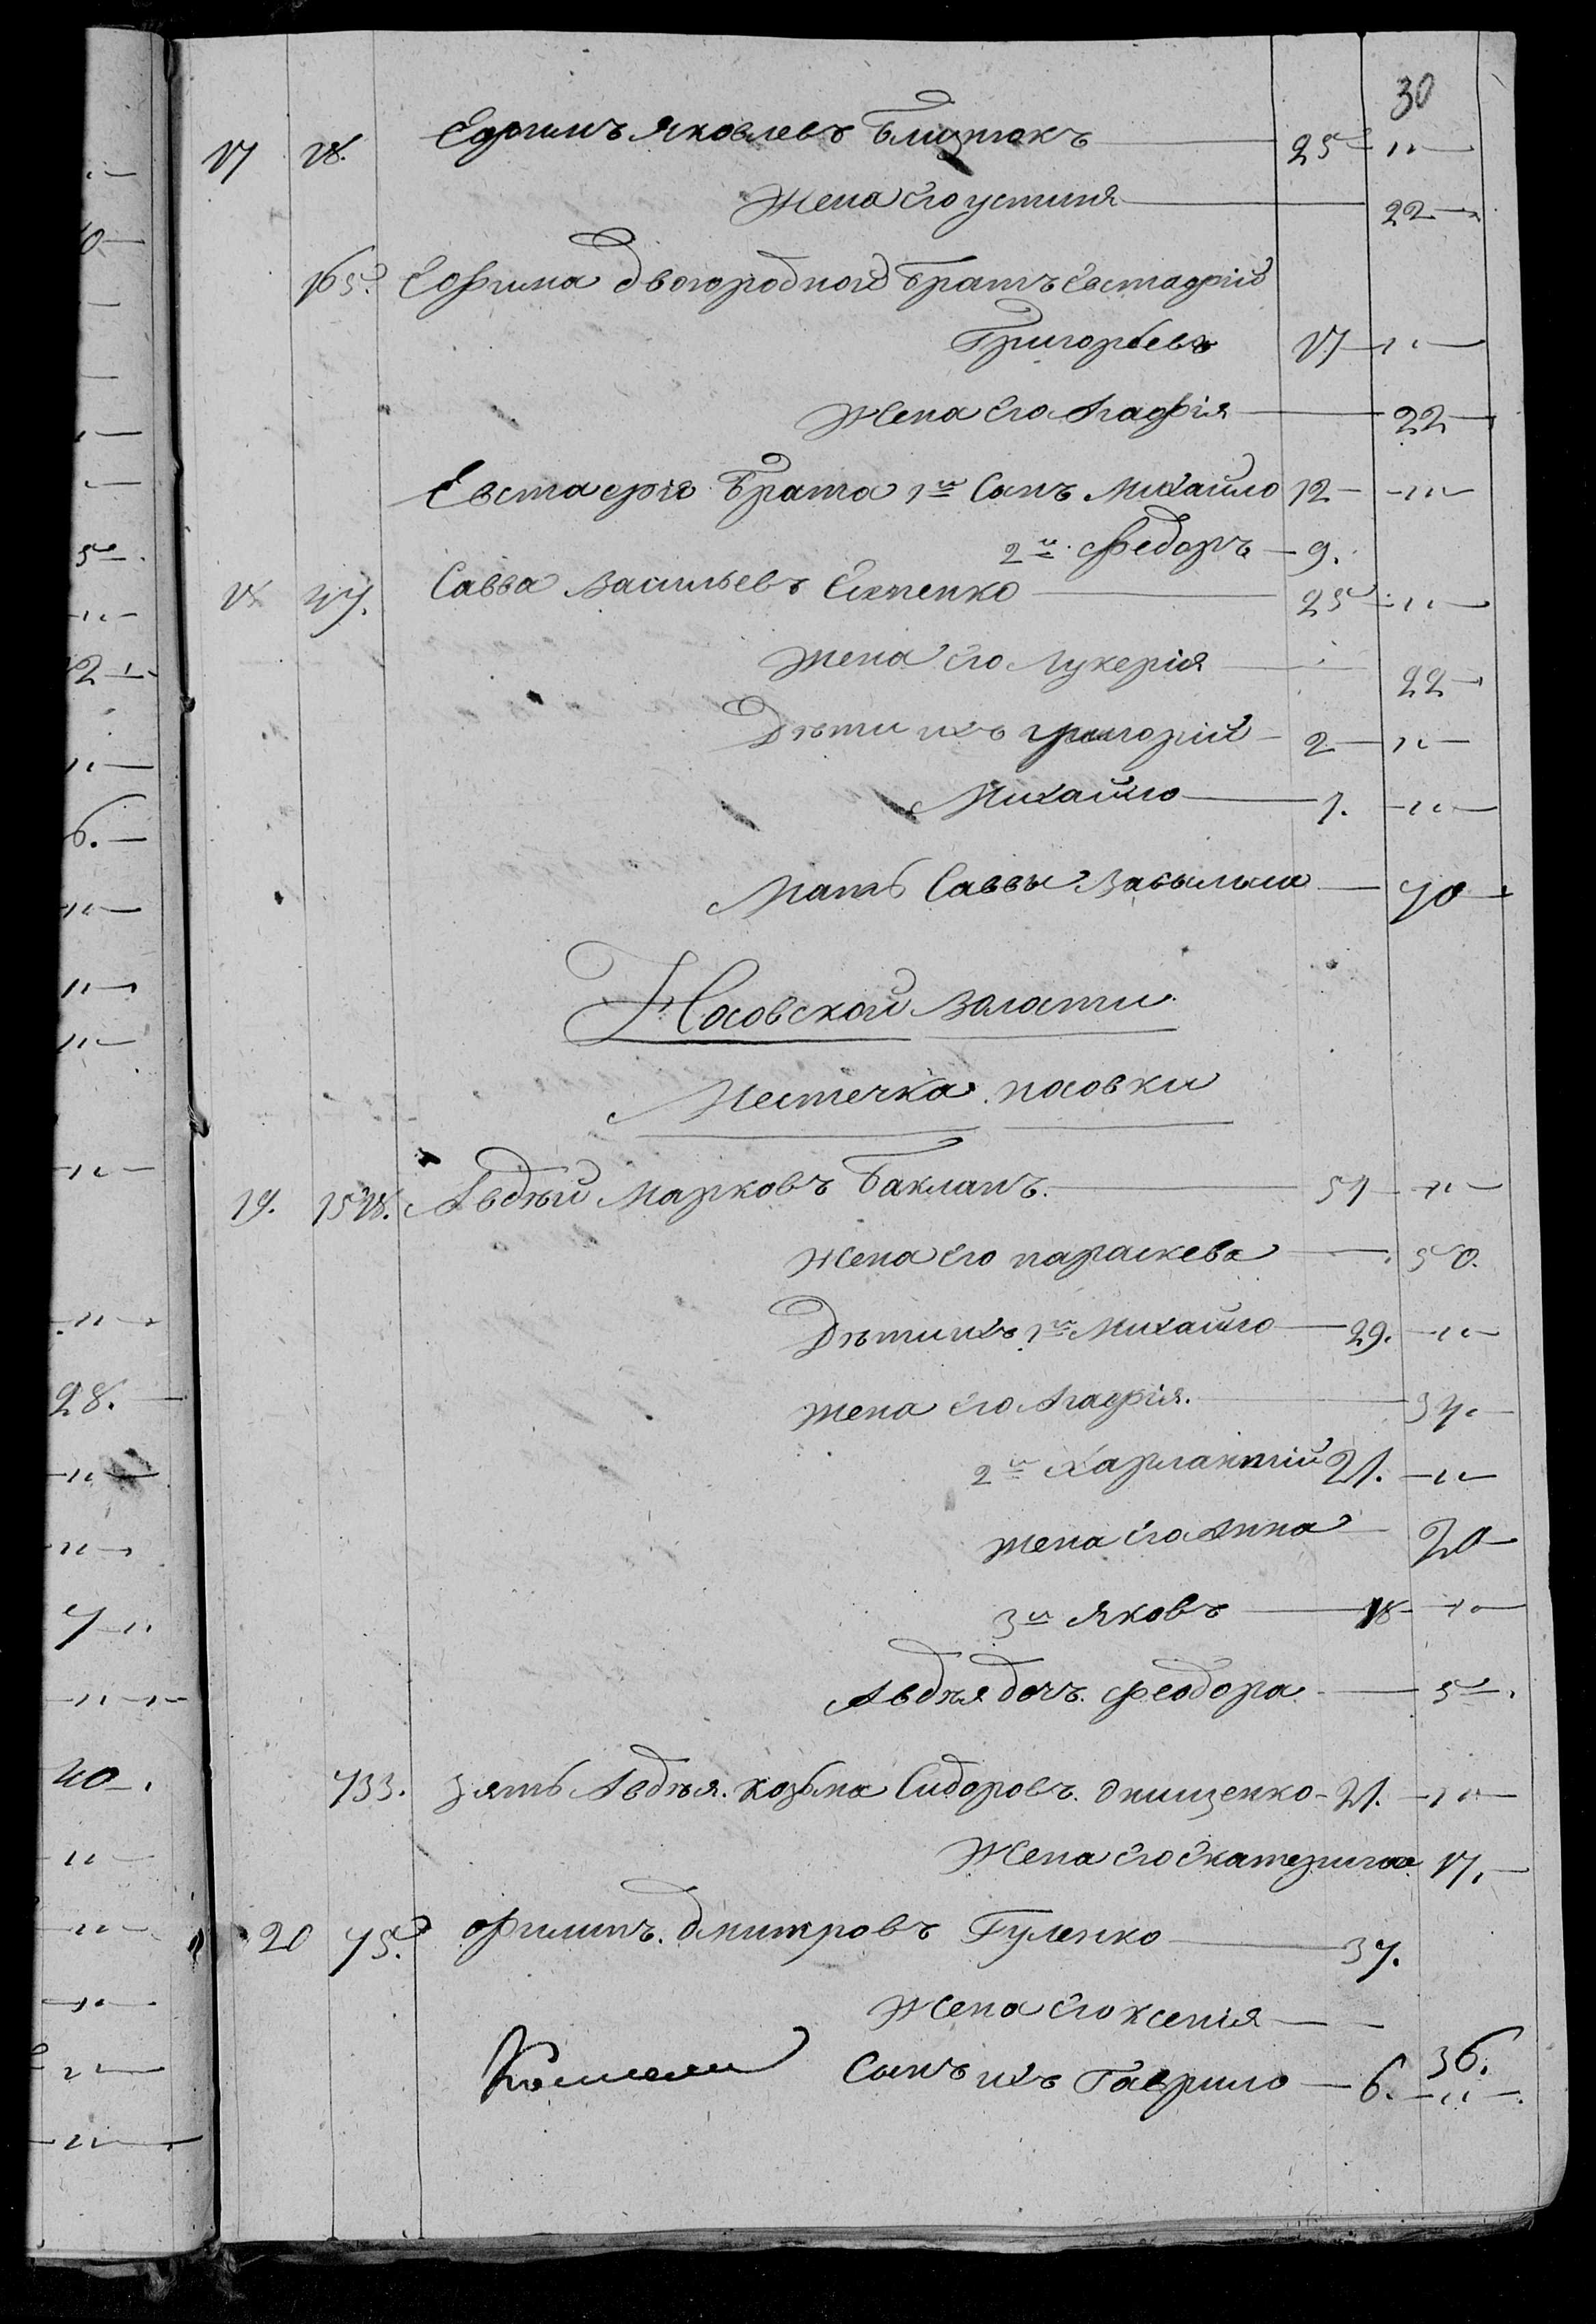 30
17 18. Ефимъ Яковлевъ Близнюкъ 25 "
Жена его Устиня 22
165. Ефима двоюродной братъ Евстафій
Григорьевъ 17 "
Жена его Агафія 22
Евстафія брата 1й Сынъ Михайло 12 "
2й Федоръ 9.
18 37. Савва Васильевъ 25 "
Жена его Лукерія 22
Дѣти ихъ Григорій 2 "
Михайло 1. "
Мать Саввы 70
Носовской волости
Местечка Носовки
19. 1518. Авдѣй Марковъ Бакланъ. 51 "
Жена его Параскева 50.
Дѣти ихъ 1й Михайло 29. "
Жена его Агафія.
2й Харлампій 21. "
Жена его Анна 20
3й Яковъ 18 "
Авдѣя дочь Феодора 5
733. Зять Авдѣя. Козьма Сидоровъ. Онищенко 21. "
Жена его Екатерина 17.
20 75. Филипъ. Дмитровъ Гуленко 37.
Жена его Ксенія
36.
Сынъ ихъ Гаврило 6. "